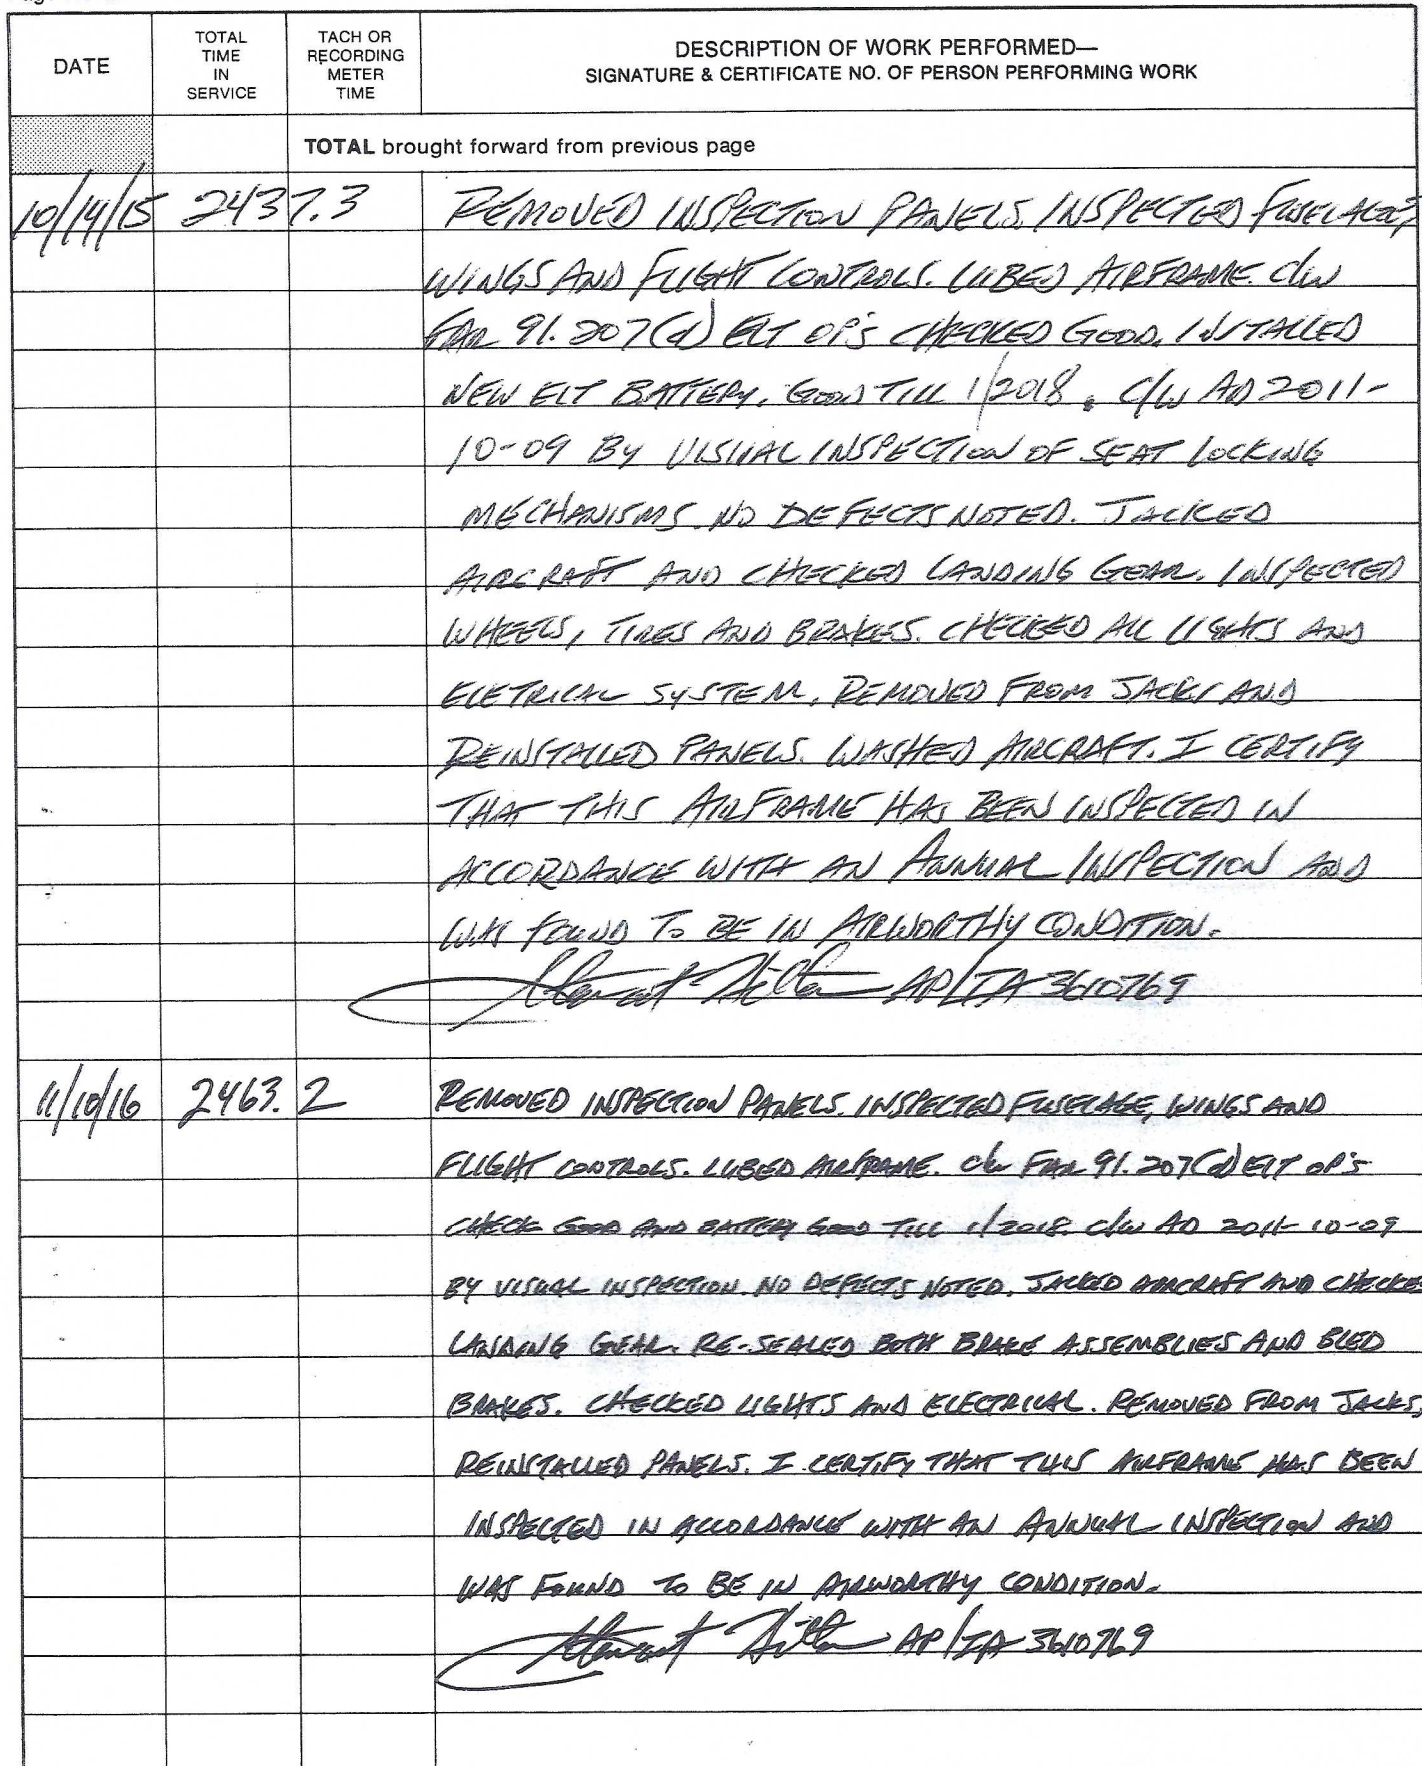 DATE
TOTAL TIME IN SERVICE
TACH OR RECORDING METER TIME
DESCRIPTION OF WORK PERFORMED—
SIGNATURE & CERTIFICATE NO. OF PERSON PERFORMING WORK
TOTAL brought forward from previous page
10/14/15 2437.3 REMOVED INSPECTION PANELS. INSPECTED FUSELAGE,
WINGS AND FLIGHT CONTROLS. LUBED AIRFRAME. C/W
FAR 91.207(d) ELT OP'S CHECKED GOOD. INSTALLED
NEW ELT BATTERY. GOOD TILL 1/2018. C/W AD 2011-
10-09 BY VISUAL INSPECTION OF SEAT LOCKING
MECHANISMS. NO DEFECTS NOTED. JACKED
AIRCRAFT AND CHECKED LANDING GEAR. INSPECTED
WHEELS, TIRES AND BRAKES. CHECKED ALL LIGHTS AND
ELETRICAL SYSTEM. REMOVED FROM JACKS AND
REINSTALLED PANELS. WASHED AIRCRAFT. I CERTIFY
THAT THIS AIRFRAME HAS BEEN INSPECTED IN
ACCORDANCE WITH AN ANNUAL INSPECTION AND
WAS FOUND TO BE IN AIRWORTHY CONDITION.
AP/IA 3610769
11/10/16 2463.2 REMOVED INSPECTION PANELS. INSPECTED FUSELAGE, WINGS AND
FLIGHT CONTROLS. LUBED AIRFRAME. C/W FAR 91.207(d) ELT OP'S
CHECK GOOD AND BATTERY GOOD TILL 1/2018. C/W AD 2011-10-09
BY VISUAL INSPECTION. NO DEFECTS NOTED. JACKED AIRCRAFT AND CHECKE
LANDING GEAR. RE-SEALED BOTH BRAKE ASSEMBLIES AND BLED
BRAKES. CHECKED LIGHTS AND ELECTRICAL. REMOVED FROM JACKS,
REINSTALLED PANELS. I CERTIFY THAT THIS AIRFRAME HAS BEEN
INSPECTED IN ACCORDANCE WITH AN ANNUAL INSPECTION AND
WAS FOUND TO BE IN AIRWORTHY CONDITION.
AP/IA 3610769